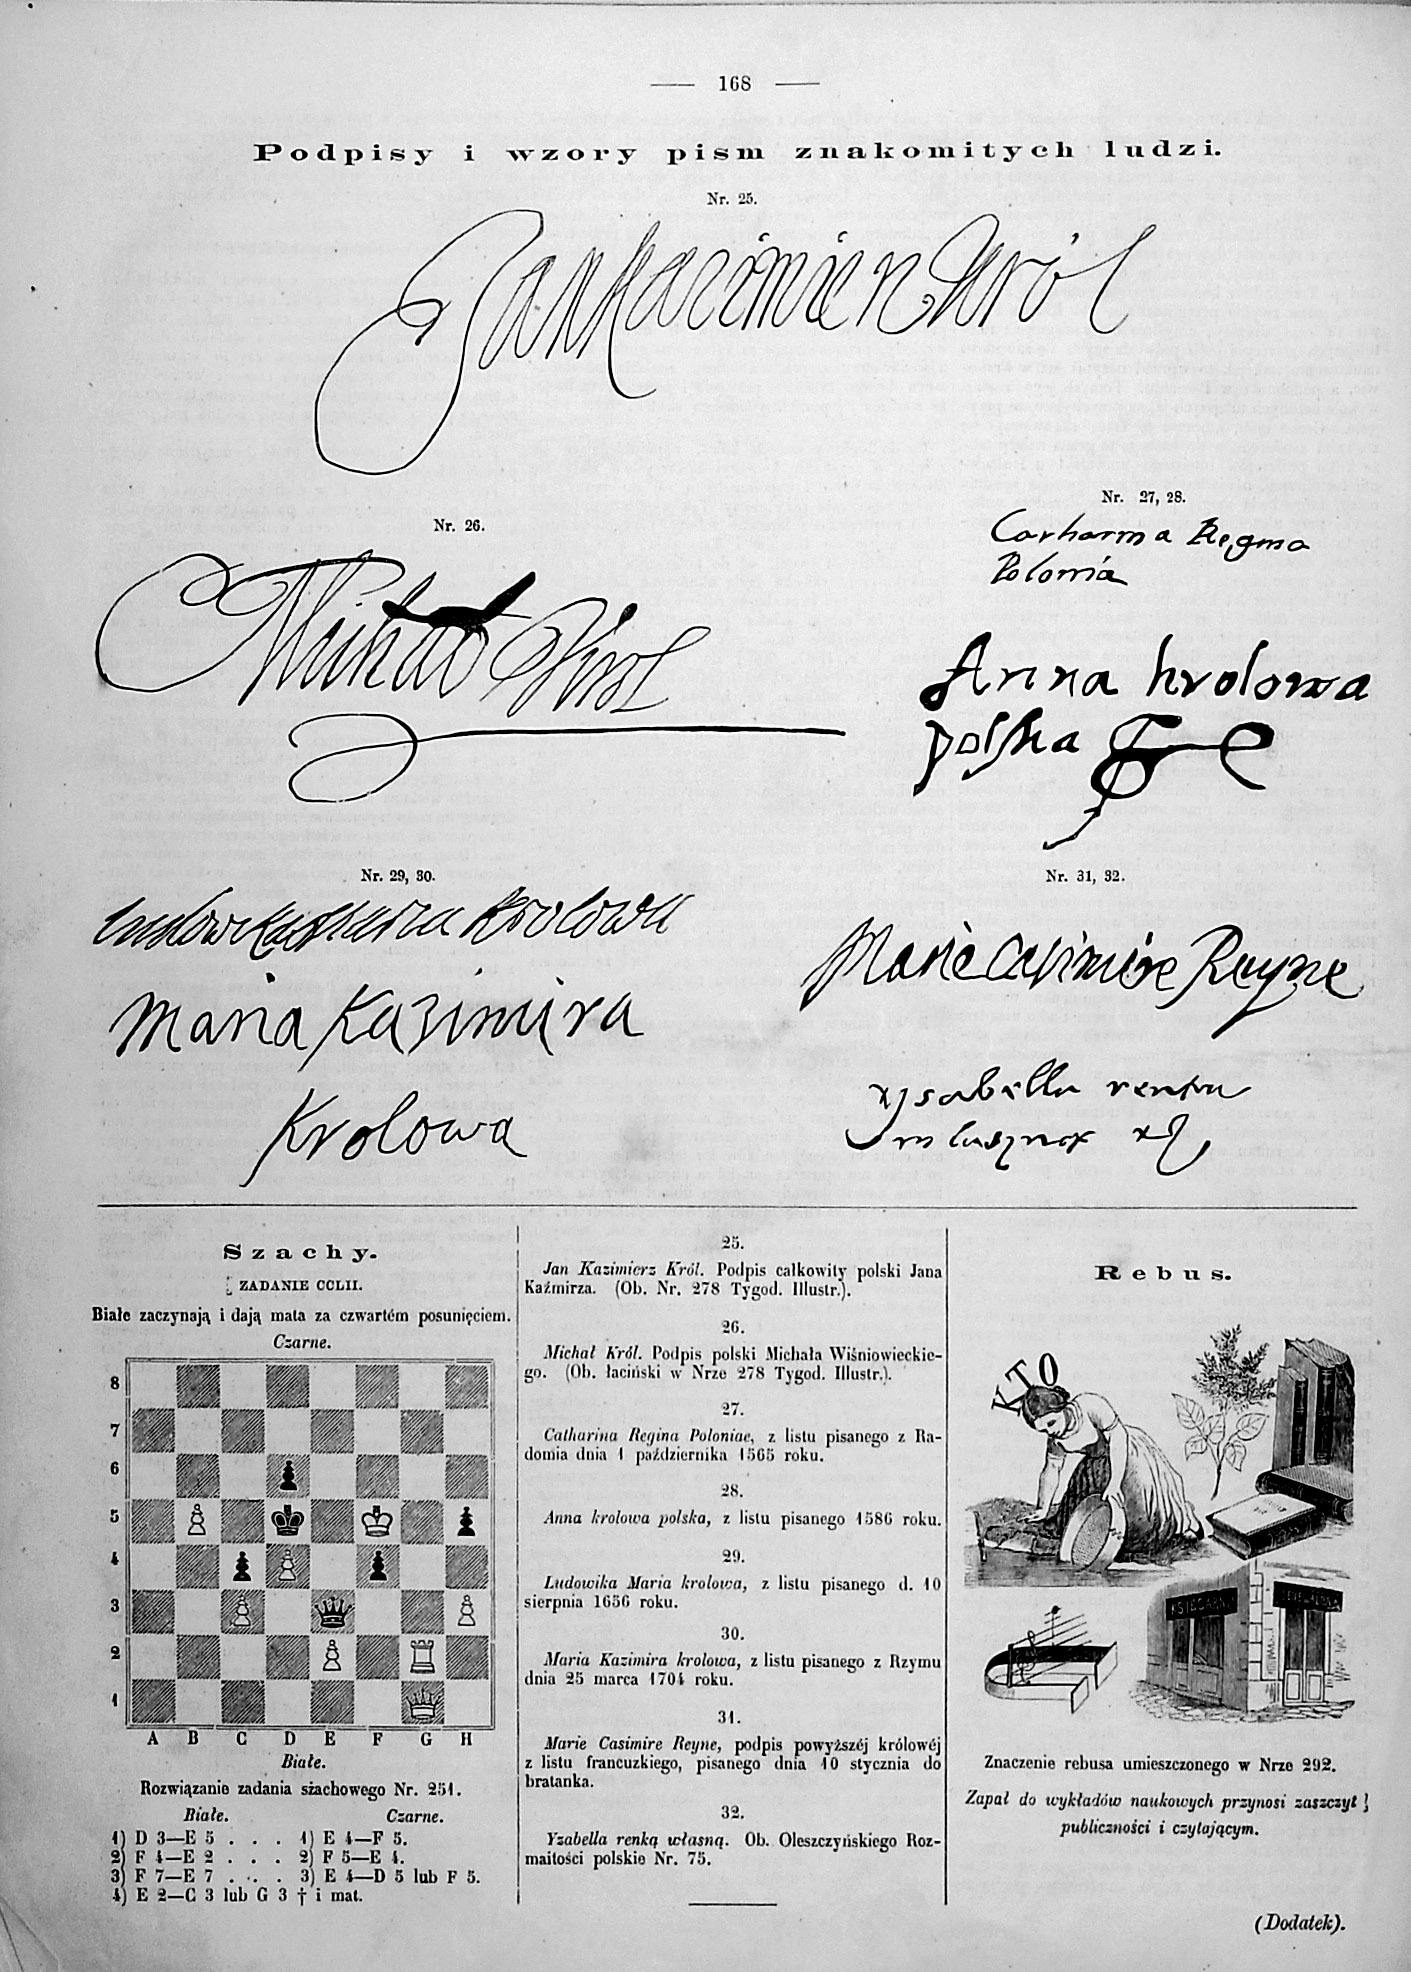 168
Podpisy i wzory pism znakomitych ludzi.
Nr. 25.
Jan Kazimierz Król
Nr. 26.
Michał Krol
Nr. 27, 28.
Catharina Regina
Polonia
Anna krolowa
polska
Nr. 29, 30.
Ludowika Maria Krolowa
Maria Kazimira
Krolowa
Nr. 31, 32.
Marie Casimire Reyne
ysabella renku
Szachy.
ZADANIE CCLII.
Białe zaczynają i dają mata za czwartém posunięciem.
Czarne.
8
7
6
5
4
3
2
1
A B C D E F G H
Białe.
Rozwiązanie zadania szachowego Nr. 251.
Białe. Czarne.
1) D 3—E 5 . . . 1) E 4—F 5.
2) F 4—E 2 . . . 2) F 5—E 4.
3) F 7—E 7 . . . 3) E 4—D 5 lub F 5.
4) E 2—C 3 lub G 3 † i mat.
25.
Jan Kazimierz Król. Podpis całkowity polski Jana
Kaźmirza. (Ob. Nr. 278 Tygod. Illustr.).
26.
Michał Król. Podpis polski Michała Wiśniowieckie-
go. (Ob. łaciński w Nrze 278 Tygod. Illustr.).
27.
Catharina Regina Poloniae, z listu pisanego z Ra-
domia dnia 1 października 1565 roku.
28.
Anna krolowa polska, z listu pisanego 1586 roku.
29.
Ludowika Maria krolowa, z listu pisanego d. 10
sierpnia 1656 roku.
30.
Maria Kazimira krolowa, z listu pisanego z Rzymu
dnia 25 marca 1704 roku.
31.
Marie Casimire Reyne, podpis powyższéj królowéj
z listu francuzkiego, pisanego dnia 10 stycznia do
bratanka.
32.
Yzabella renką własną. Ob. Oleszczyńskiego Roz-
maitości polskie Nr. 75.
Rebus.
KTO
KSIĘGARNIA
Znaczenie rebusa umieszczonego w Nrze 292.
Zapał do wykładów naukowych przynosi zaszczyt
publiczności i czytającym.
(Dodatek).